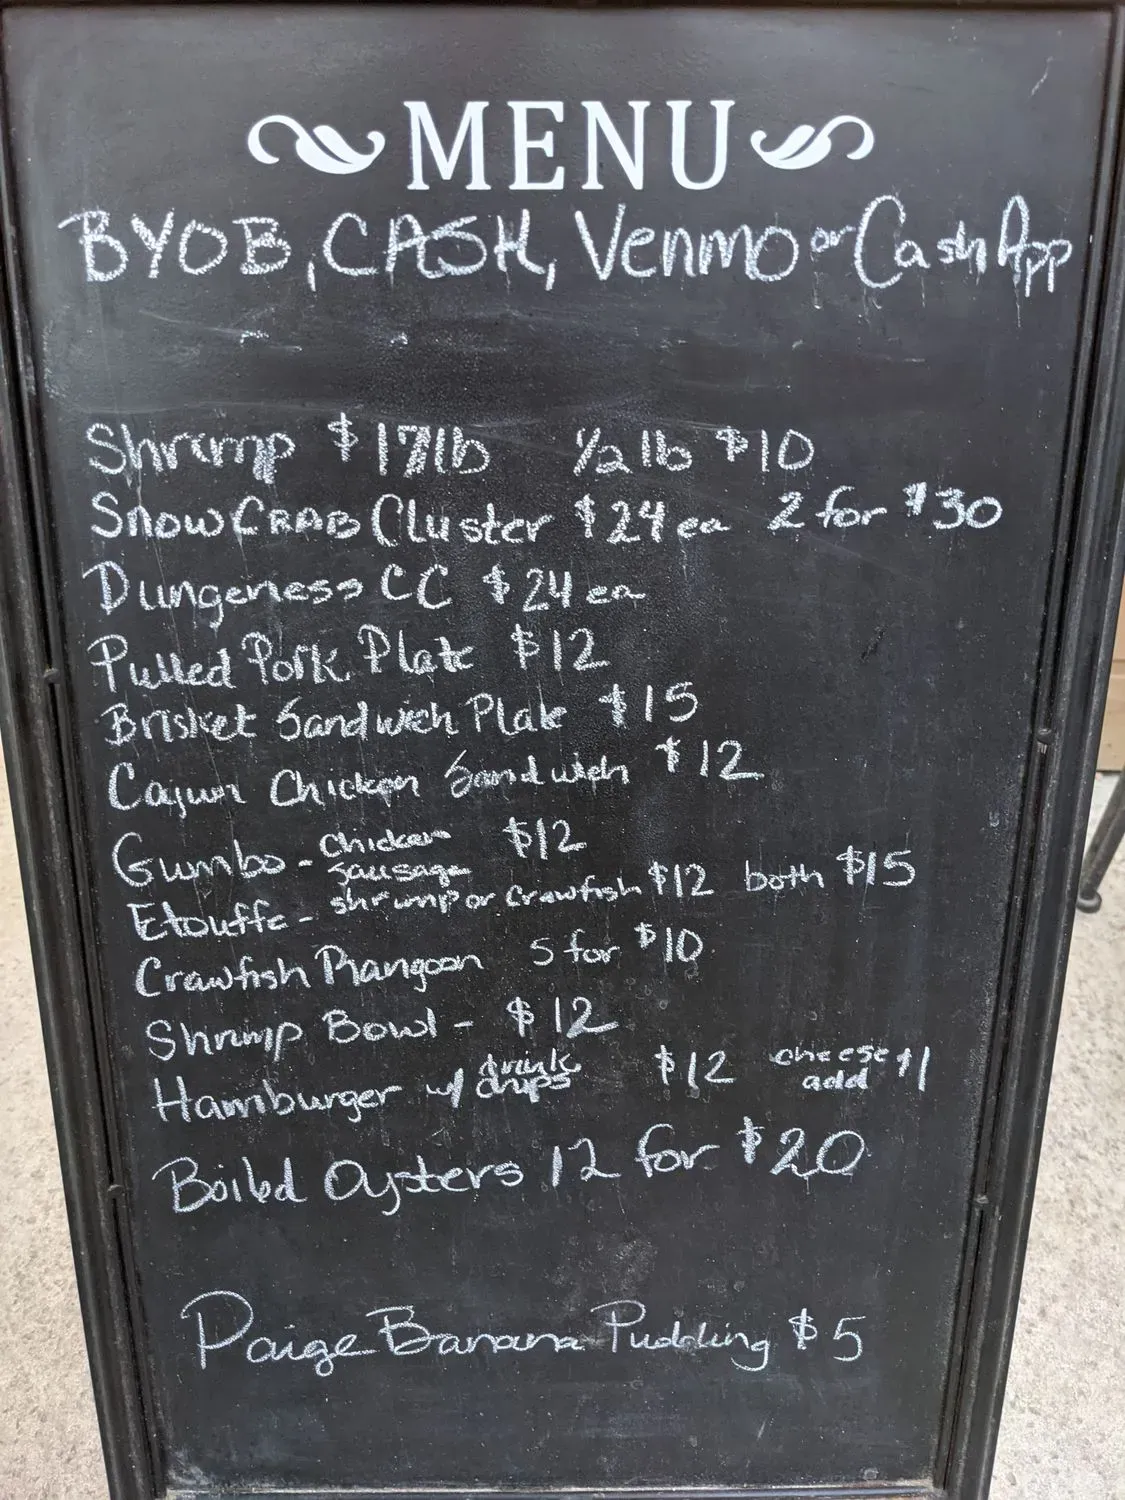 MENU
BYOB, CASH, Venmo or Cash App
Shrimp $17lb 1/2 lb $10
Snow CRAB Cluster $24 ea 2 for $30
Dungeness CC $24 ea
Pulled Pork Plate $12
Brisket Sandwich Plate $15
Cajun Chicken Sandwich $12
Gumbo - chicken sausage $12
Etouffe - shrimp or crawfish $12 both $15
Crawfish Rangoon 5 for $10
Shrimp Bowl - $12
Hamburger w/ drink chips $12 cheese add $1
Boiled Oysters 12 for $20
Paige Banana Pudding $5